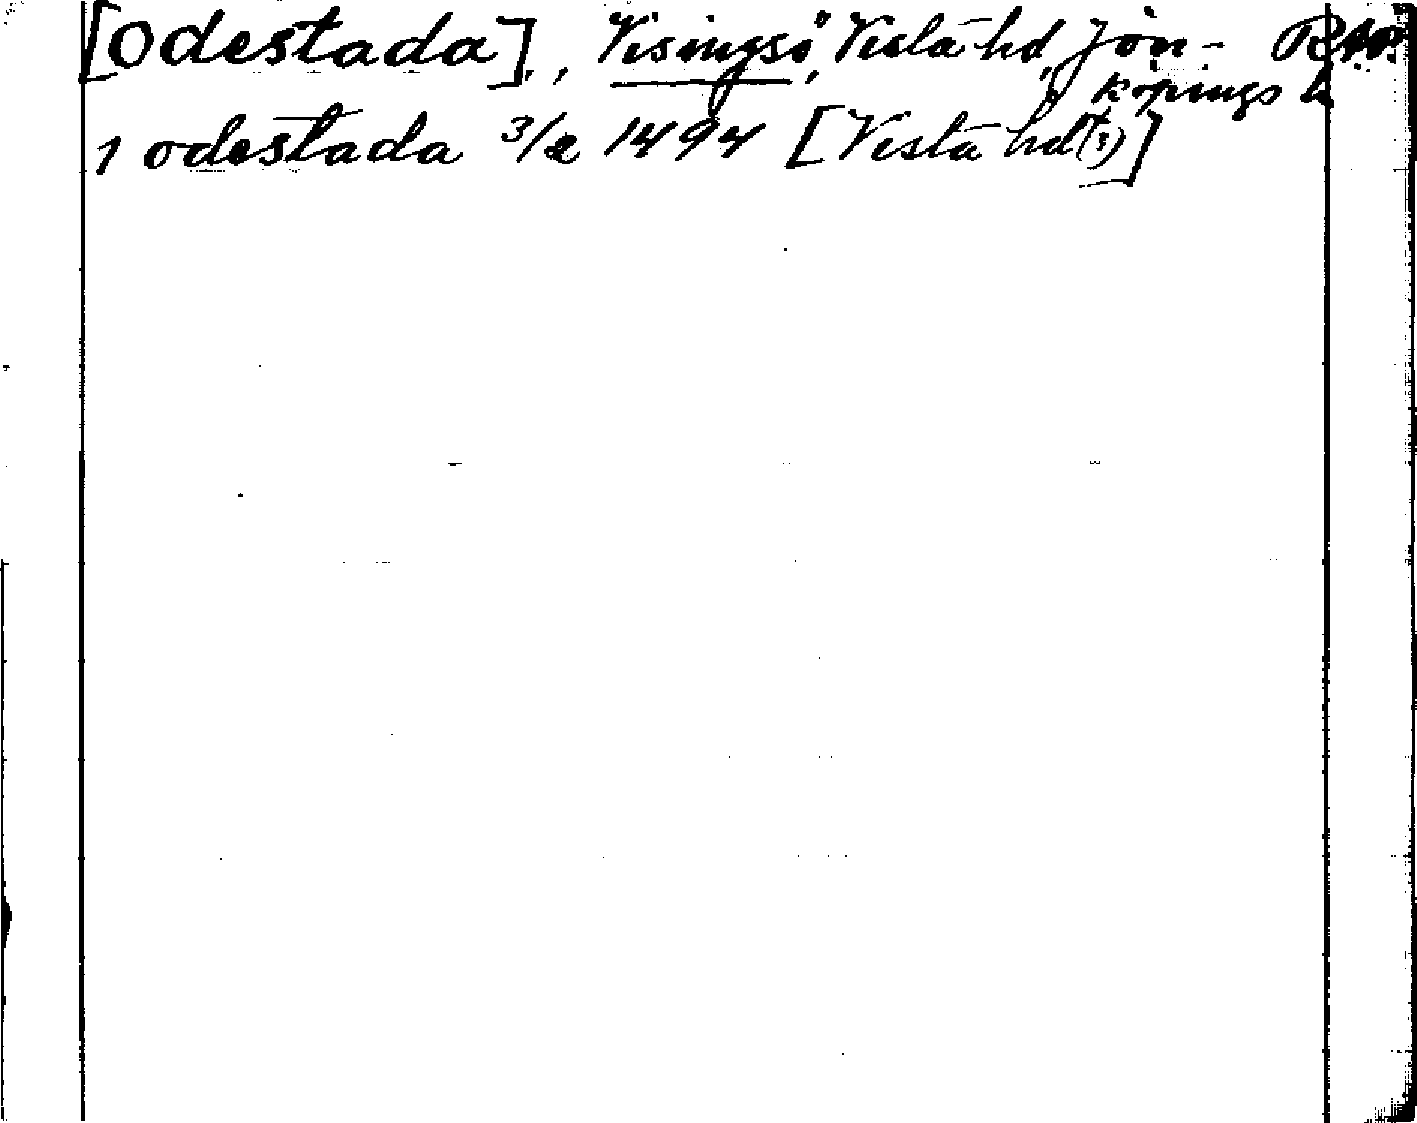 [Odestada], Visingsö, Vista hd, Jön-
köpings l.
1 odestada 3/2 1494 [Vista hd(t3)]